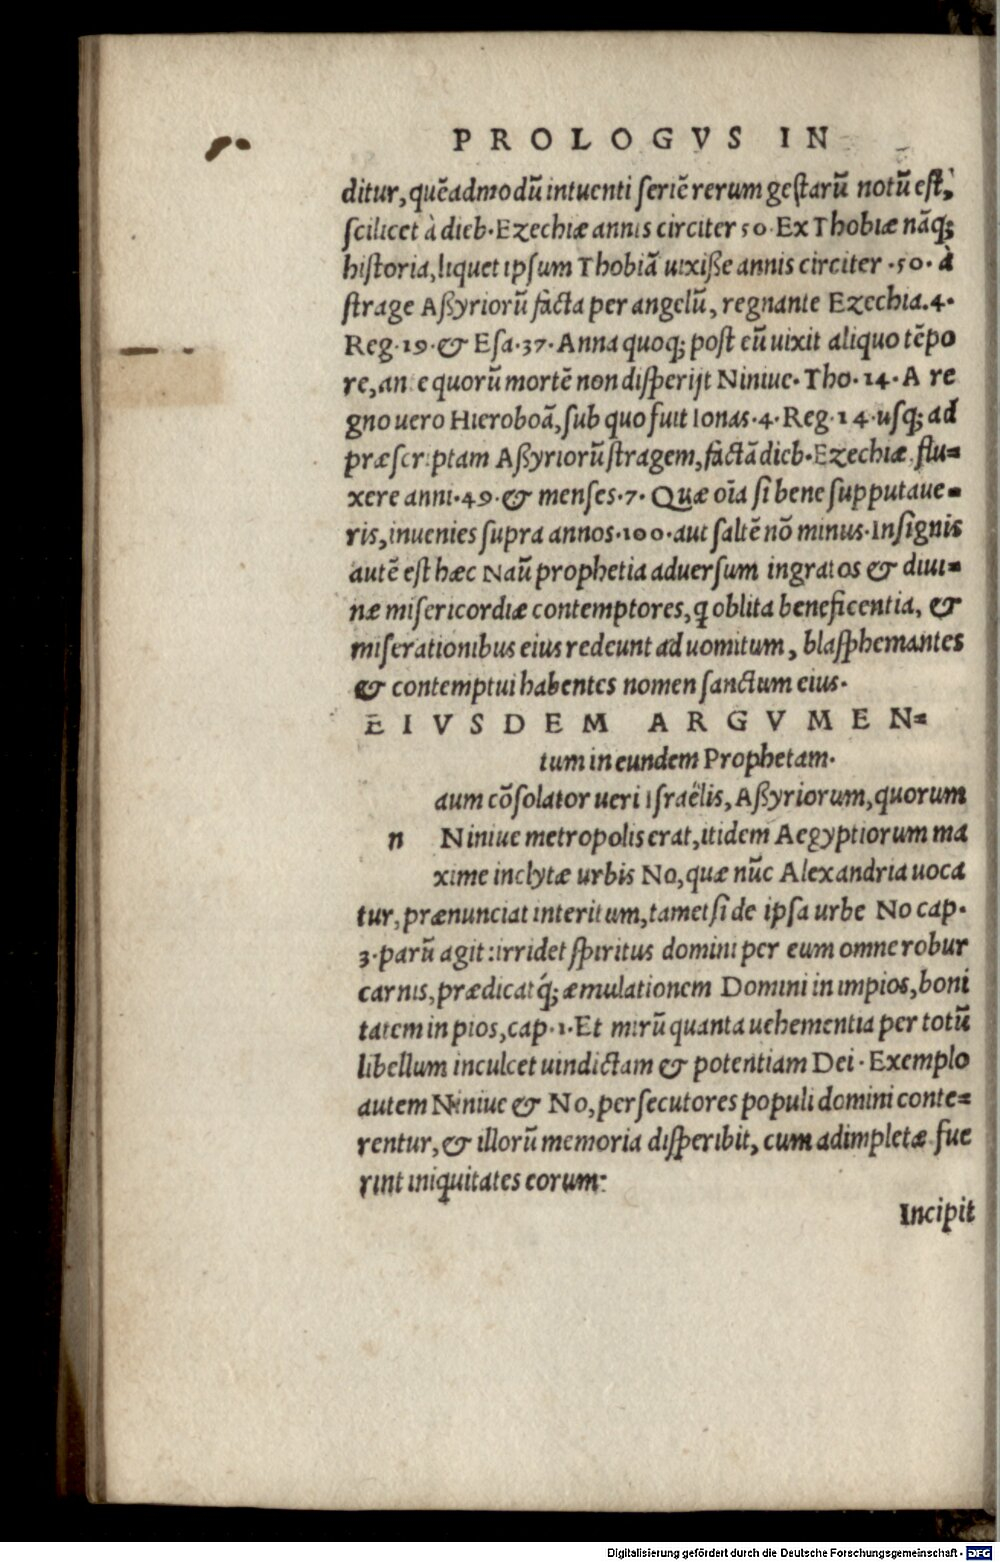 PROLOGVS IN
ditur, quẽadmodũ intuenti seriẽ rerum gestarũ notũ est,
scilicet à dieb. Ezechiæ annis circiter 50. Ex Thobiæ nãq;
historia, liquet ipsum Thobiã uixiße annis circiter .50. à
strage Aßyriorũ facta per angelũ, regnante Ezechia. 4.
Reg. 19. & Esa. 37. Anna quoq; post eũ uixit aliquo tẽpo
re, an e quorũ mortẽ non disperijt Niniue. Tho. 14. A re
gno uero Hieroboã, sub quo fuit Ionas. 4. Reg. 14. usq; ad
præscriptam Aßyriorũ stragem, factã dieb. Ezechiæ flu=
xere anni. 49. & menses. 7. Quæ oĩa si bene supputaue=
ris, inuenies supra annos. 100. aut saltẽ nõ minus. Insignis
autẽ est hæc Naũ prophetia aduersum ingratos & diui=
næ misericordiæ contemptores, q oblita beneficentia, &
miserationibus eius redeunt ad uomitum, blasphemantes
& contemptui habentes nomen sanctum eius.
EIVSDEM ARGVMEN=
tum in eundem Prophetam.
aum cõsolator ueri Israëlis, Aßyriorum, quorum
n Niniue metropolis erat, itidem Aegyptiorum ma
xime inclytæ urbis No, quæ nũc Alexandria uoca
tur, prænunciat interitum, tametsi de ipsa urbe No cap.
3. parũ agit: irridet spiritus domini per eum omne robur
carnis, prædicatq́; æmulationem Domini in impios, boni
tatem in pios, cap. 1. Et mirũ quanta uehementia per totũ
libellum inculcet uindictam & potentiam Dei. Exemplo
autem Niniue & No, persecutores populi domini conte=
rentur, & illorũ memoria disperibit, cum adimpletæ fue
rint iniquitates eorum:
Incipit
Digitalisierung gefördert durch die Deutsche Forschungsgemeinschaft - DFG